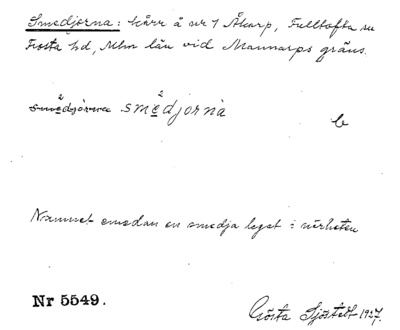 Smedjorna: kärr å nr 1 Åkarp, Fulltofta sn
Frosta hd, Mlm län vid Mannarps gräns.
smedjórna smèdjórnà
b
Namnet emedan en smedja legat i närheten
Nr 5549.
Gösta Sjöstedt 1927.